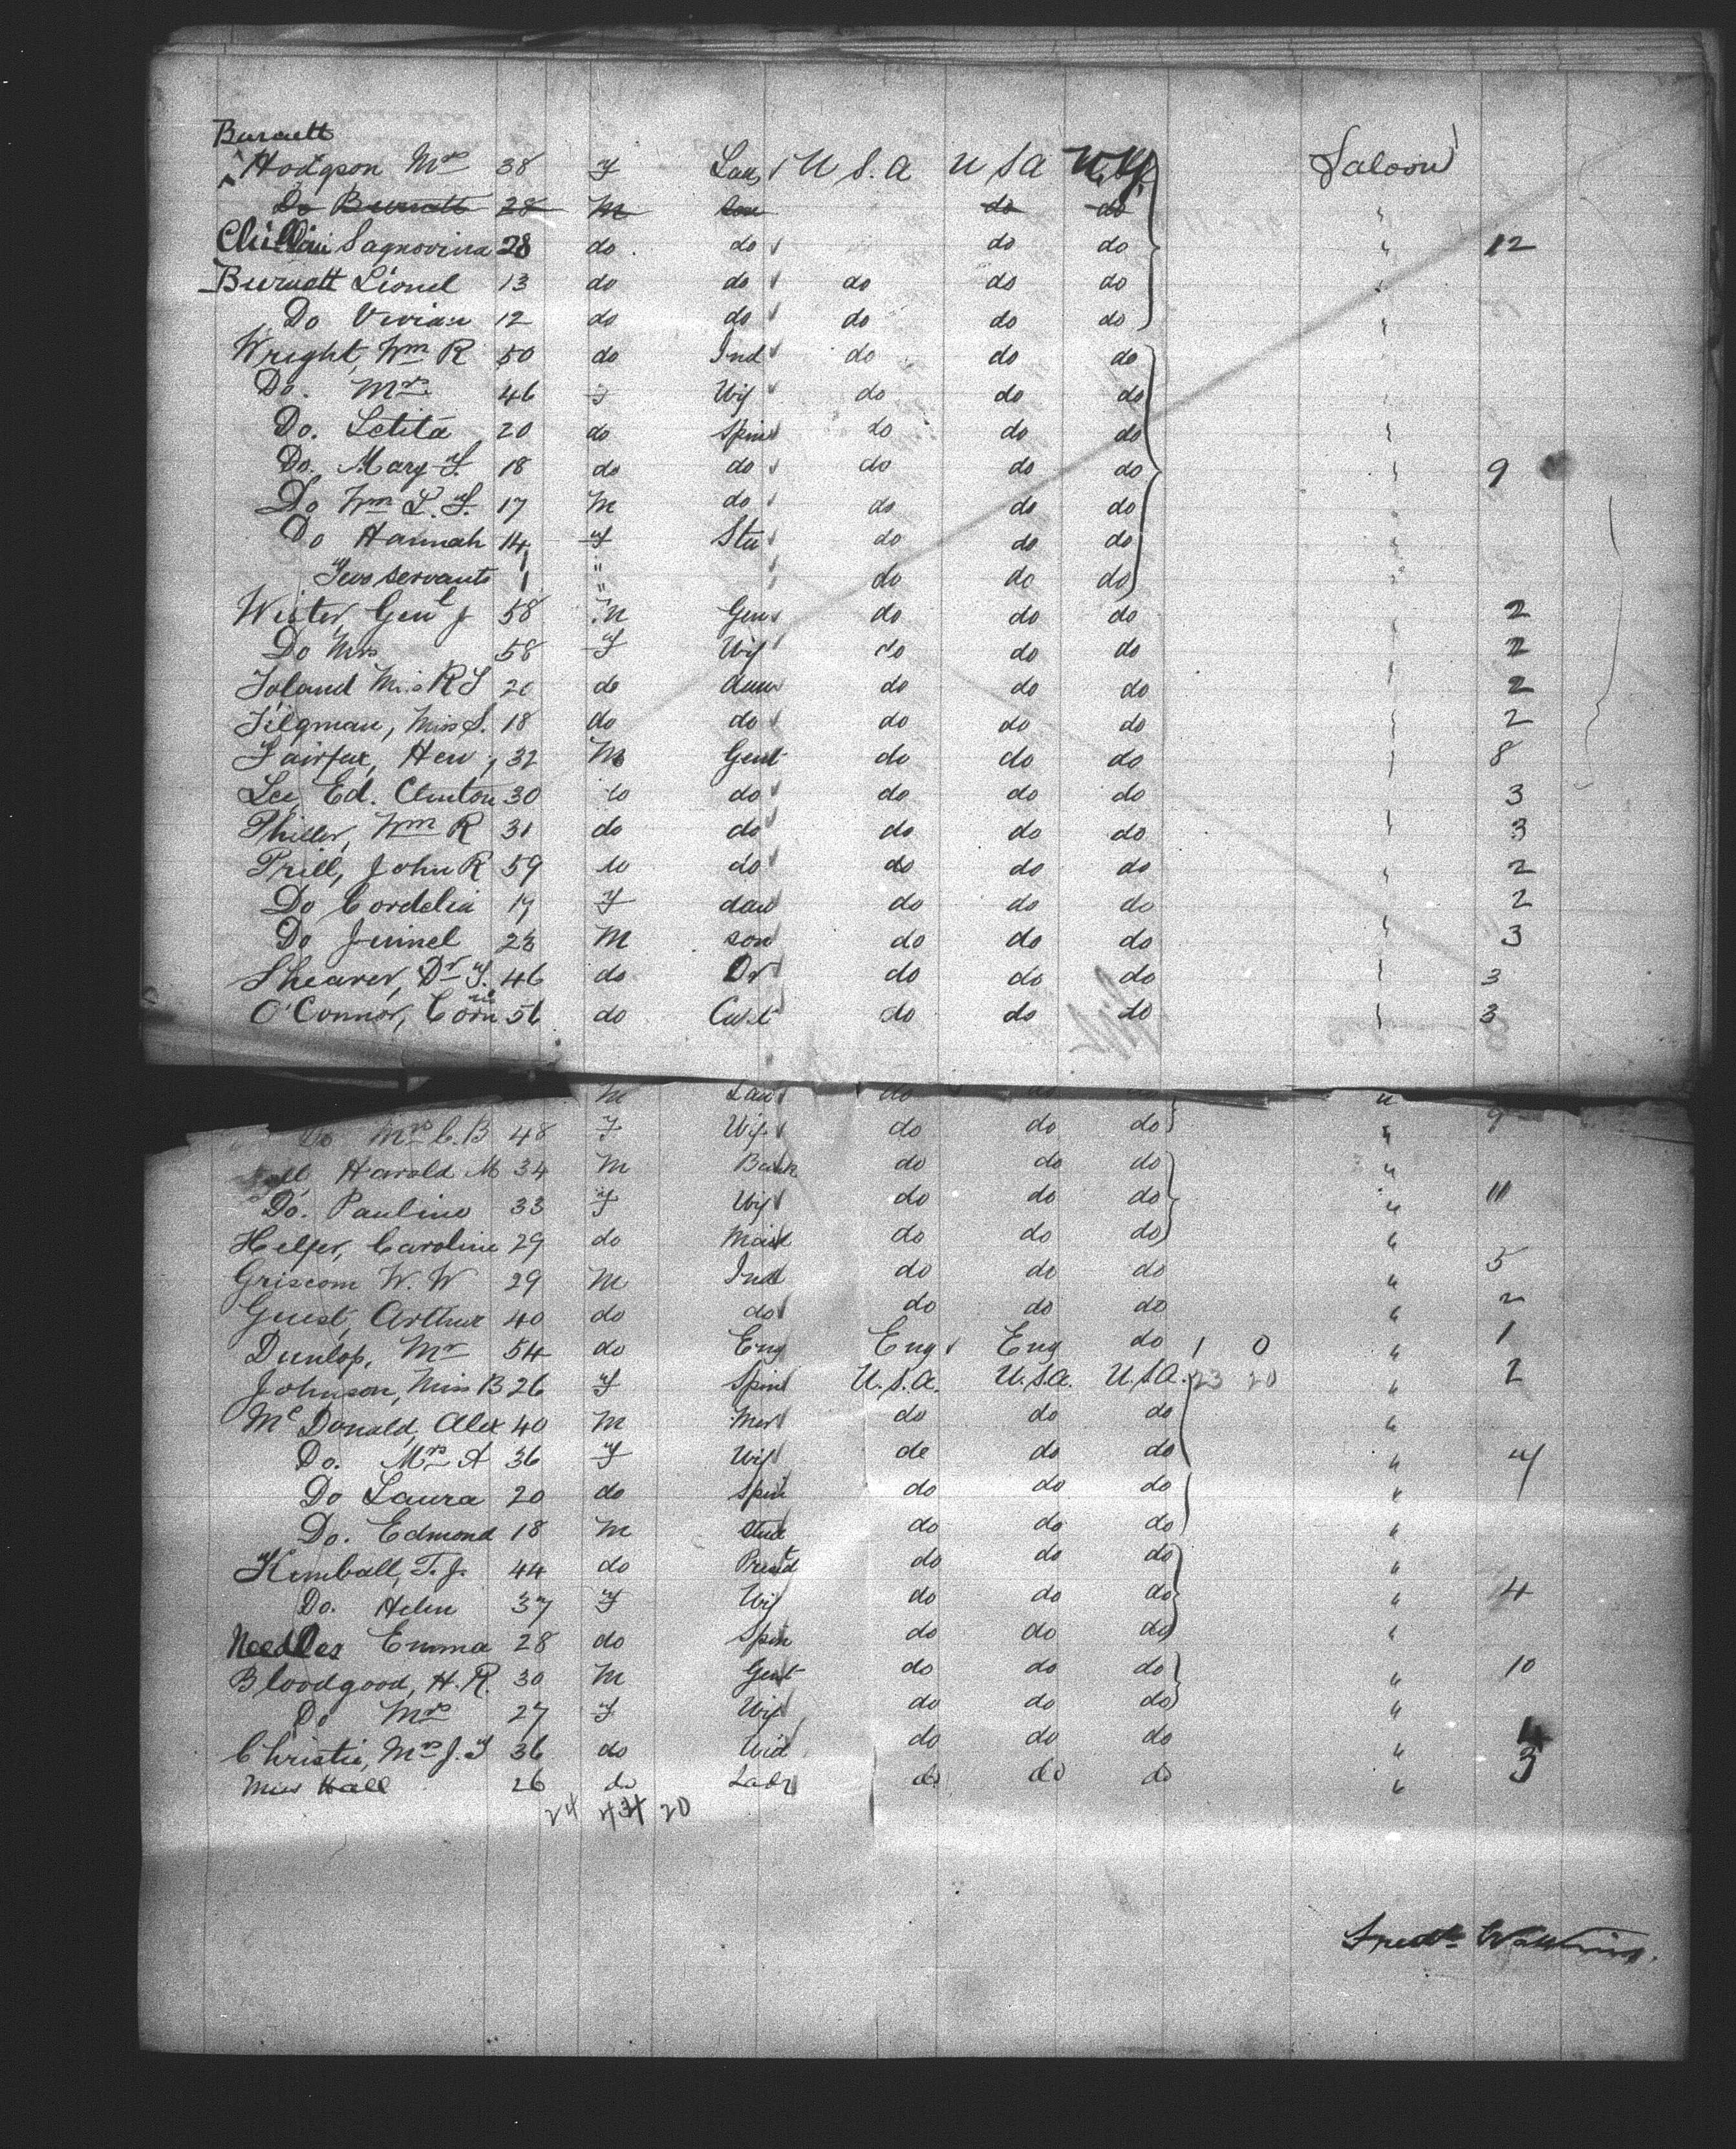 Burnett
Hodgson Mrs 38 F Lady U S. A U S A N.Y. Saloon
Do Burnett 28 M son do do "
28 do do do do " 12
Burnett Lionel 13 do do do do do "
Do Vivian 12 do do do do do "
Wright, Wm R 50 do Ind do do do "
Do. Mrs 46 F Wif do do do "
Do. Letita 20 do Spin do do do "
Do. Mary F. 18 do do do do do " 9
Do Wm L. F. 17 M do do do do "
Do Hannah 14 F Stu do do do "
Two servants 1 " do do do "
1 "
Wister, Genl J 58 M Gen do do do " 2
Do Mrs 58 F Wif do do do " 2
Toland Miss R S do do do do " 2
Tilgman, Miss S. 18 do do do do do " 2
Fairfax, Hen 32 M Gent do do do " 8
Lee, Ed. Clinton 30 do do do do do " 3
Philler, Wm R 31 do do do do do " 3
Prill, John R 59 do do do do do " 2
Do Cordelia 19 F dau do do do " 2
Do Juinel 23 M son do do do " 3
Shearer, Dr F. 46 do Dr do do do " 3
O'Connor, Corn 56 do do do do " 3
M Law do do do " 9
Do Mrs C. B 48 F Wif do do do "
Harold M 34 M Bank do do do "
Do. Pauline 33 F Wif do do do " 11
Helfer, Caroline 29 do Maid do do do "
Griscom W. W 29 M Ind do do do " 5
Guest, Arthur 40 do do do do do " 2
Dunlop, Mr 54 do Eng Eng Eng do 1 0 " 1
Johnson, Miss B 26 F Spin U.S.A. U.S.A. U.S.A. 23 20 " 2
McDonald, Alex 40 M Mer do do do "
Do. Mrs A 36 F Wif do do do " 4
Do Laura 20 do Spin do do do "
Do. Edmond 18 M Stud do do do "
Kimball, T. J. 44 do Presd do do do "
Do. Helen 37 F Wif do do do " 4
Needles Emma 28 do Spin do do do "
Bloodgood, H. R. 30 M Gent do do do " 10
Do Mrs 27 F Wif do do do "
Christie, Mrs J. F 36 do Wid do do do " 4
Miss Hall 26 do Lady do do do " 3
24 20
Fredk Watkins.